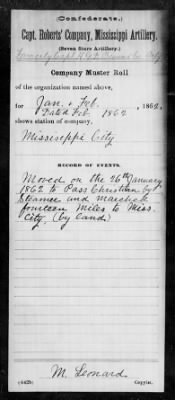 (Confederate.)
Capt. Roberts' Company, Mississippi Artillery.
(Seven Stars Artillery.)
Company Muster Roll
of the organization named above,
for Jan. & Feb., 1862,
Dated Feb. 1862
shows station of company,
Mississippi City
RECORD OF EVENTS.
Moved on the 26th January
1862 to Pass Christian by
Steamer and marched
fourteen Miles to Miss.
City, (by land)
M. Leonard
Copyist.